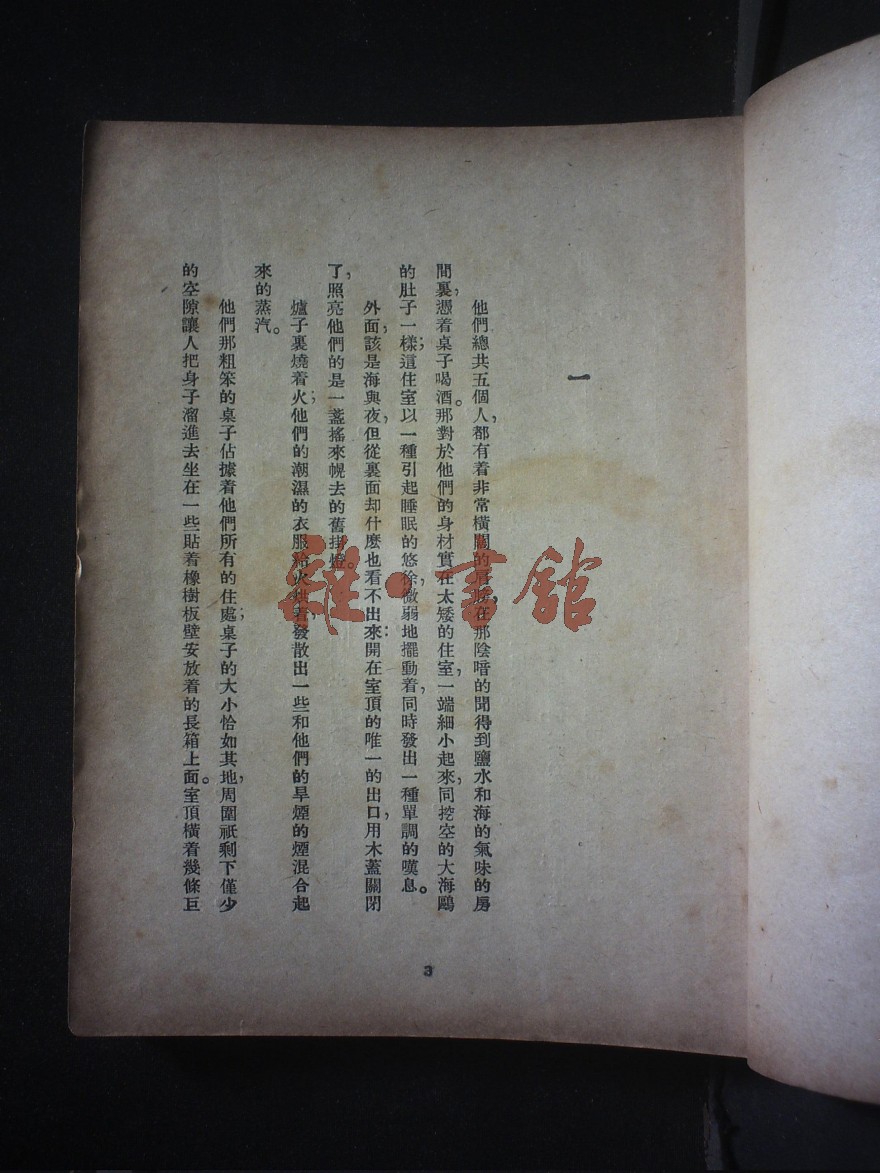 一
他們總共五個人，都有着非常橫闊的肩膀，在那陰暗的聞得到鹽水和海的氣味的房
間裏，憑着桌子喝酒。那對於他們的身材實在太矮的住室，一端細小起來，同挖空的大海鷗
的肚子一樣；這住室以一種引起睡眠的悠徐，微弱地擺動着，同時發出一種單調的嘆息。
外面，該是海與夜，但從裏面却什麽也看不出來：開在室頂的唯一的出口，用木蓋關閉
了，照亮他們的是一盞搖來幌去的舊掛燈。
爐子裏燒着火；他們的潮濕的衣服給火烘着，發散出一些和他們的旱煙的煙混合起
來的蒸汽。
他們那粗笨的桌子佔據着他們所有的住處；桌子的大小恰如其地，周圍祇剩下僅少
的空隙讓人把身子溜進去坐在一些貼着橡樹板壁安放着的長箱上面。室頂橫着幾條巨
3
雜·書館